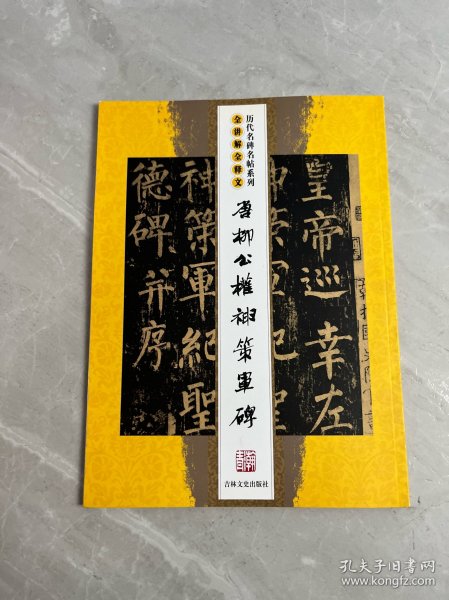 历代名碑名帖系列
全讲解全释文
唐柳公權神策軍碑
吉林文史出版社
皇帝巡幸左
神策軍紀聖
德碑并序
孔夫子旧书网
www.kongfz.com